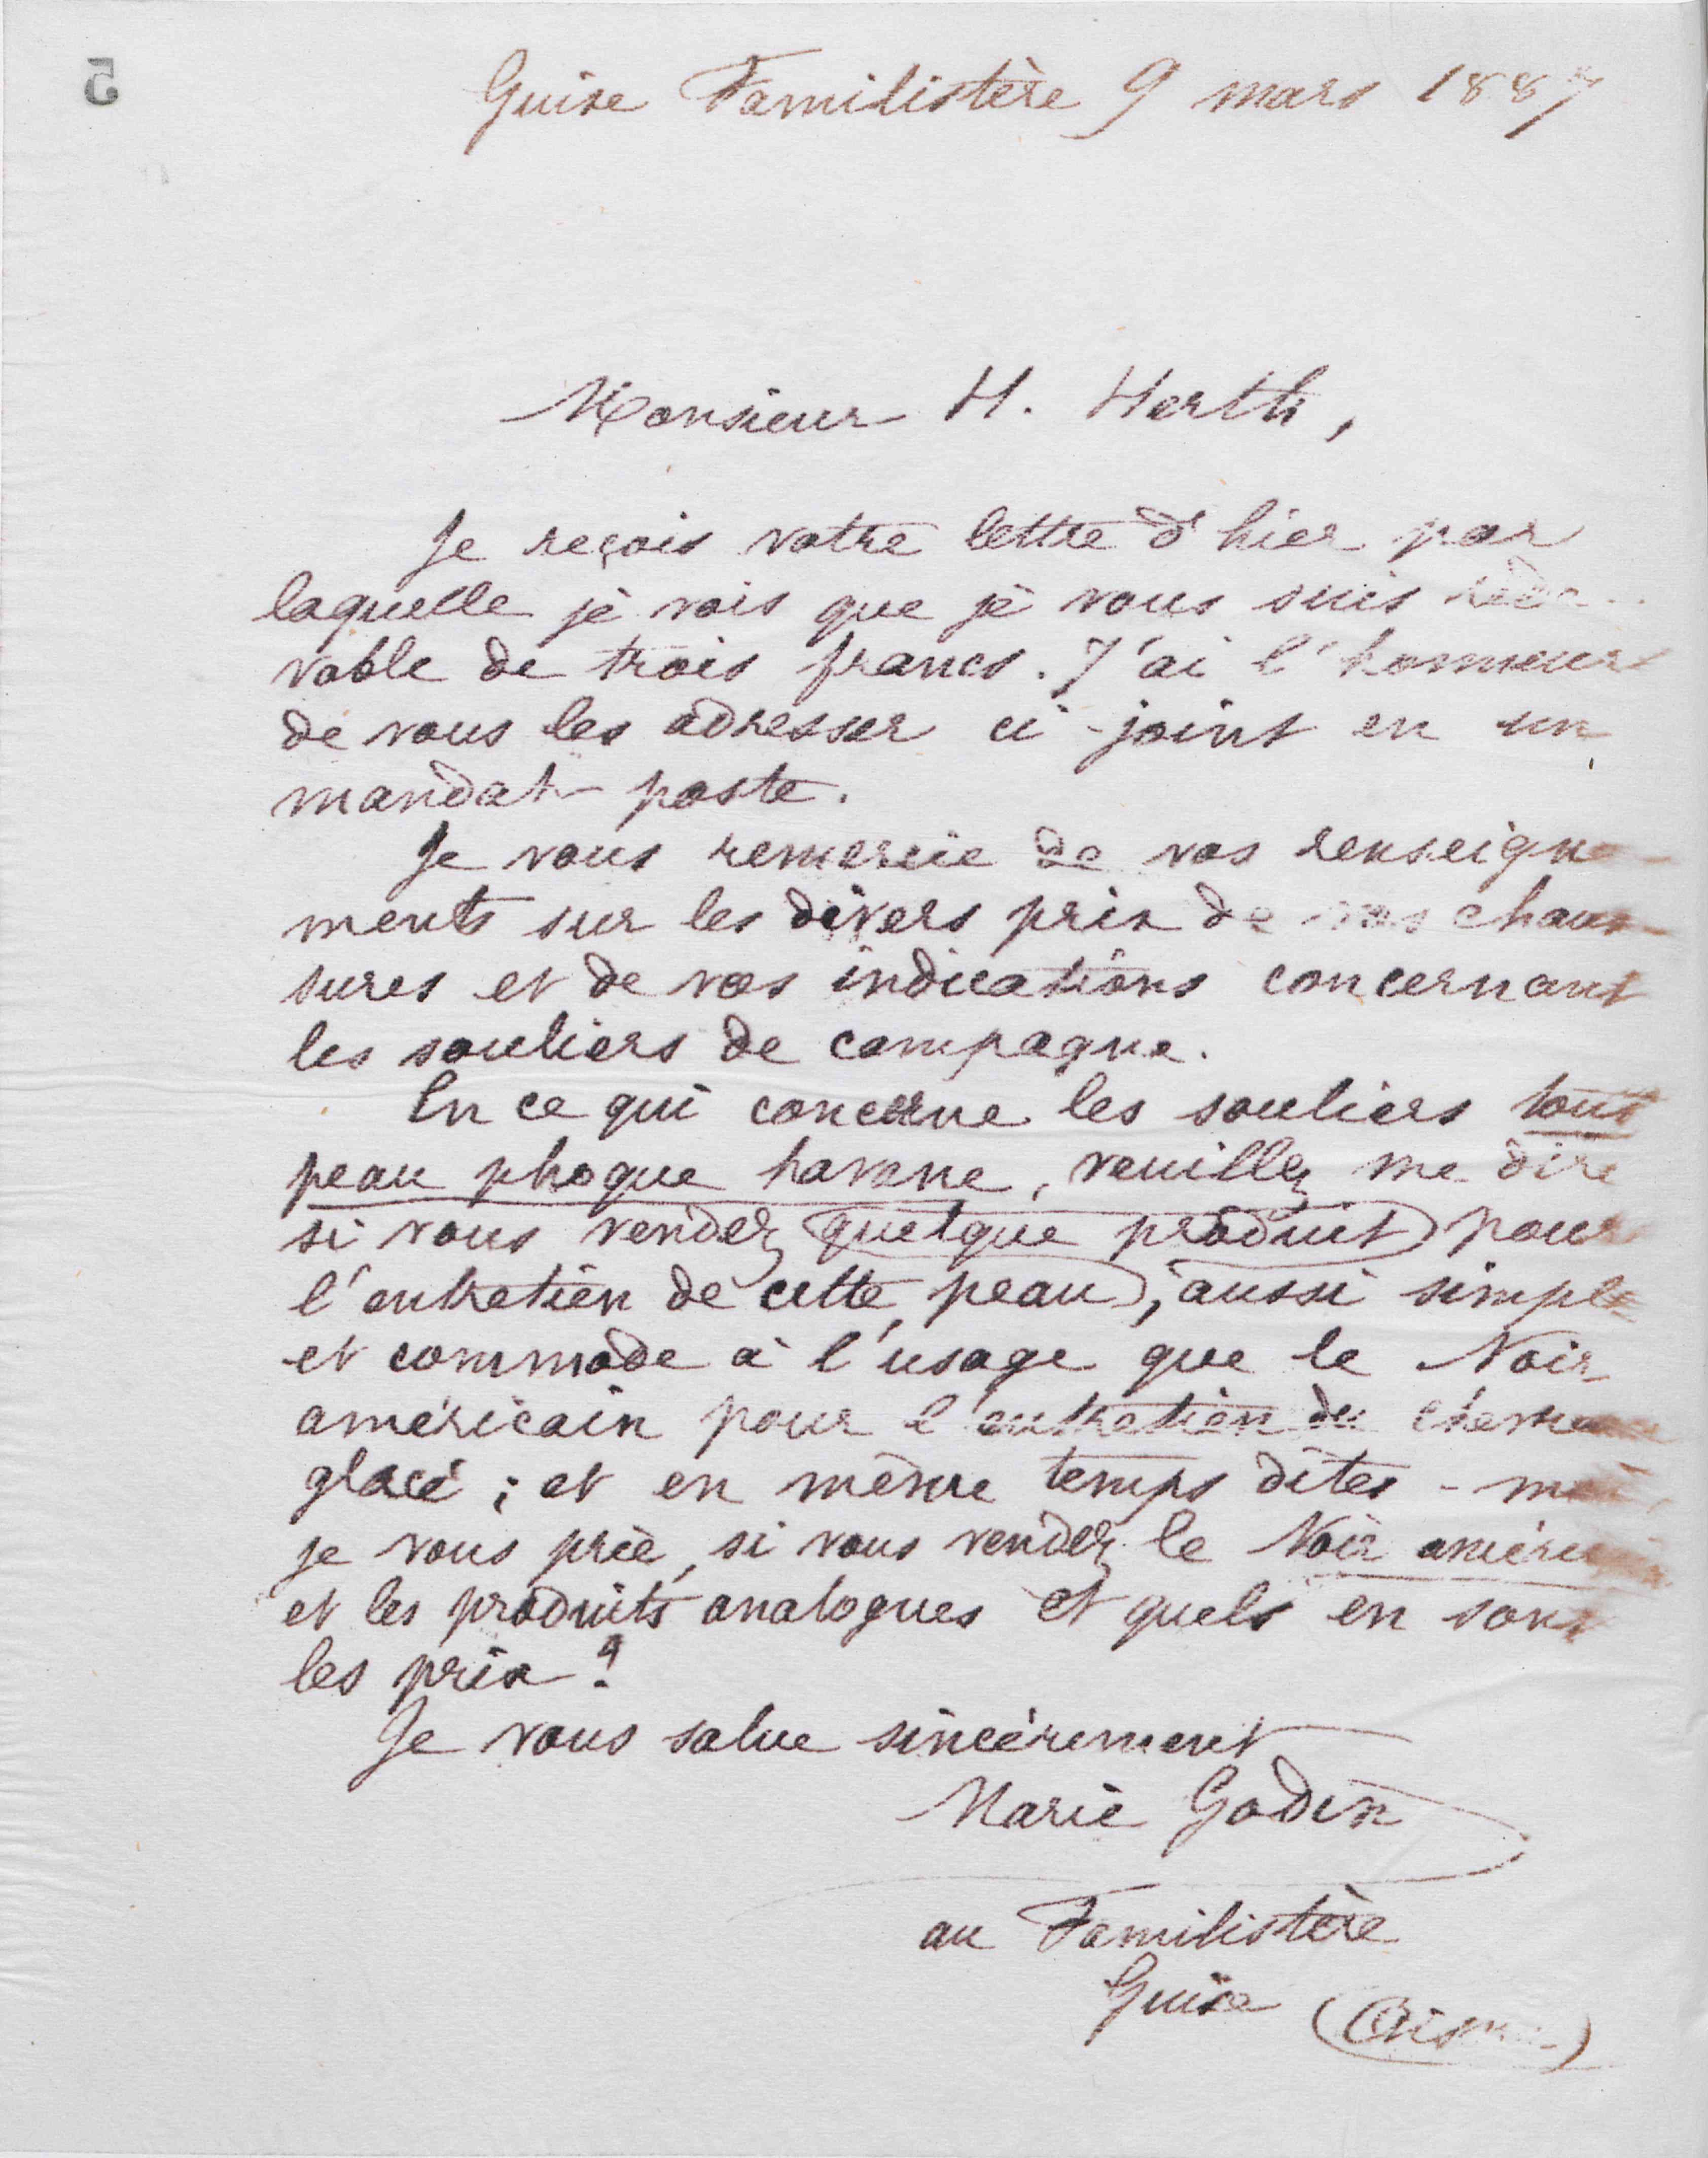 5
Guise Familistère 9 mars 1887
Monsieur H. Herth,
Je reçois votre lettre d'hier par
laquelle je vois que je vous suis rede-
vable de trois francs. J'ai l'honneur
de vous les adresser ci-joint en un
mandat-poste.
Je vous remercie de vos renseigne-
ments sur les divers prix de vos chaus-
sures et de vos indications concernant
les souliers de campagne.
En ce qui concerne les souliers tout
peau phoque havane, veuillez me dire
si vous vendez quelque produit pour
l'entretien de cette peau, aussi simple
et commode à l'usage que le Noir
américain pour l'entretien du chevreau
glacé ; et en même temps dites-moi,
je vous prie, si vous vendez le Noir américain
et les produits analogues et quels en sont
les prix ?
Je vous salue sincèrement
Marie Godin
au Familistère
Guise (Aisne)